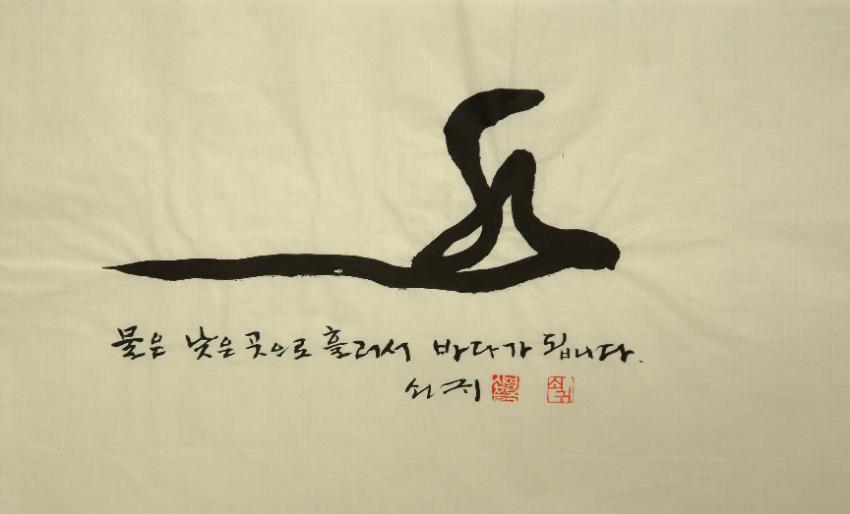 물은 낮은 곳으로 흘러서 바다가 됩니다.
쇠귀